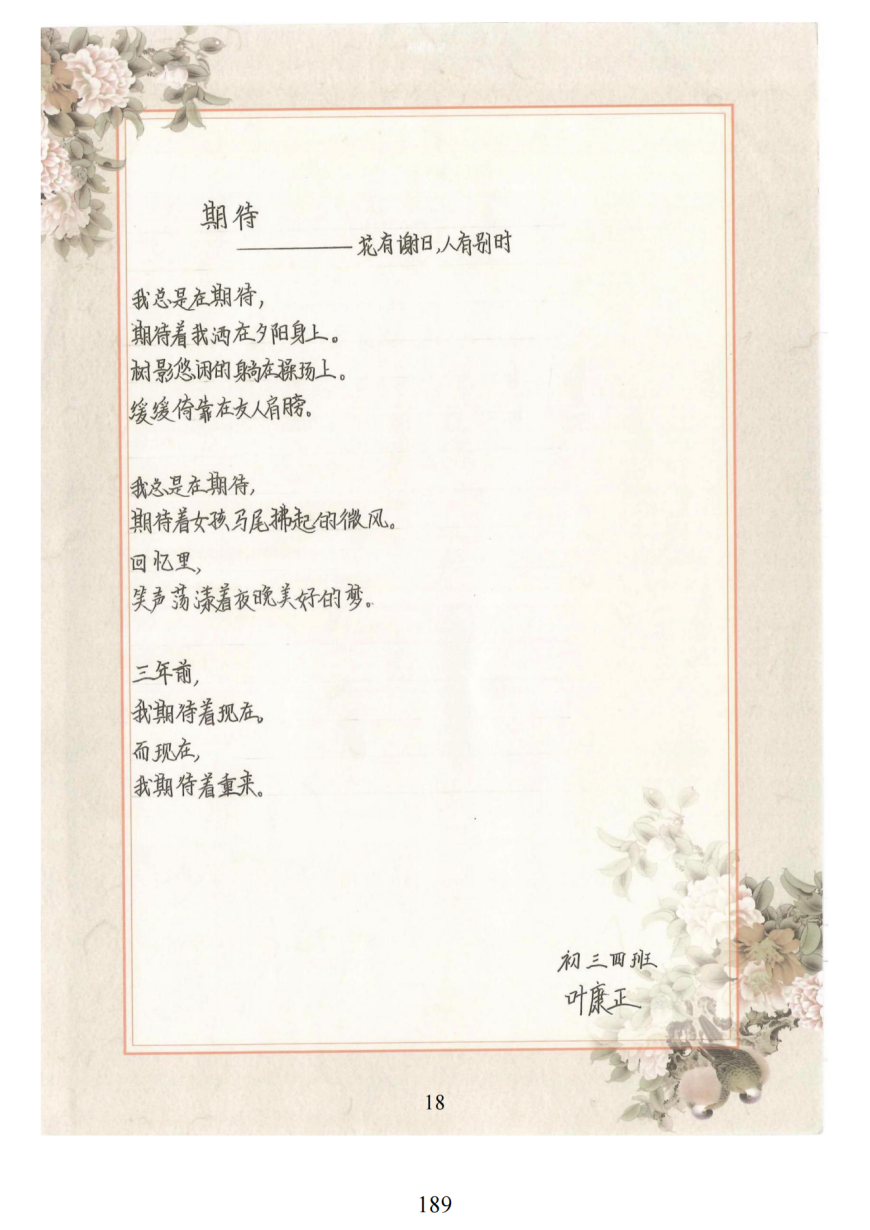 期待
————花有谢日,人有别时
我总是在期待,
期待着我洒在夕阳身上。
树影悠闲的躺在操场上。
缓缓倚靠在友人肩膀。
我总是在期待,
期待着女孩马尾拂起的微风。
回忆里,
笑声荡漾着夜晚美好的梦。
三年前,
我期待着现在。
而现在,
我期待着重来。
初三四班
叶康正
18
189